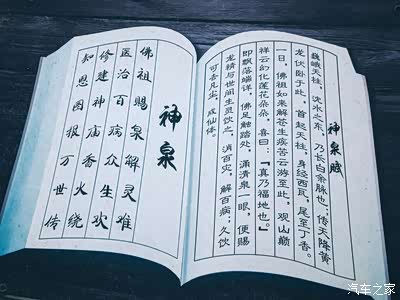 神泉赋
巍峨天柱，沈水之东，乃长白余脉也。传天降黄
龙伏卧于此，首起天柱，身经西瓦，尾至丁香。
一日，佛祖如来解苍生疾苦云游至此，观山巅
祥云幻化莲花朵朵，喜曰：『真乃福地也。』
即飘落端详，佛足触踏处，涌清泉一眼，便赐
龙精与世间生灵饮之，消百灾，解百病；久饮
可去凡尘，成仙体。
神泉
佛祖赐泉解灵难
医治百病众生欢
修建神庙香火绕
知恩图报万世传
汽车之家